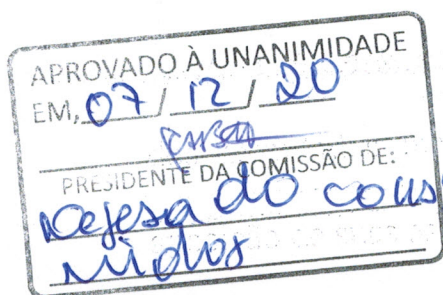 APROVADO À UNANIMIDADE
EM, 07 / 12 / 20
PRESIDENTE DA COMISSÃO DE:
Defesa do consu
midor